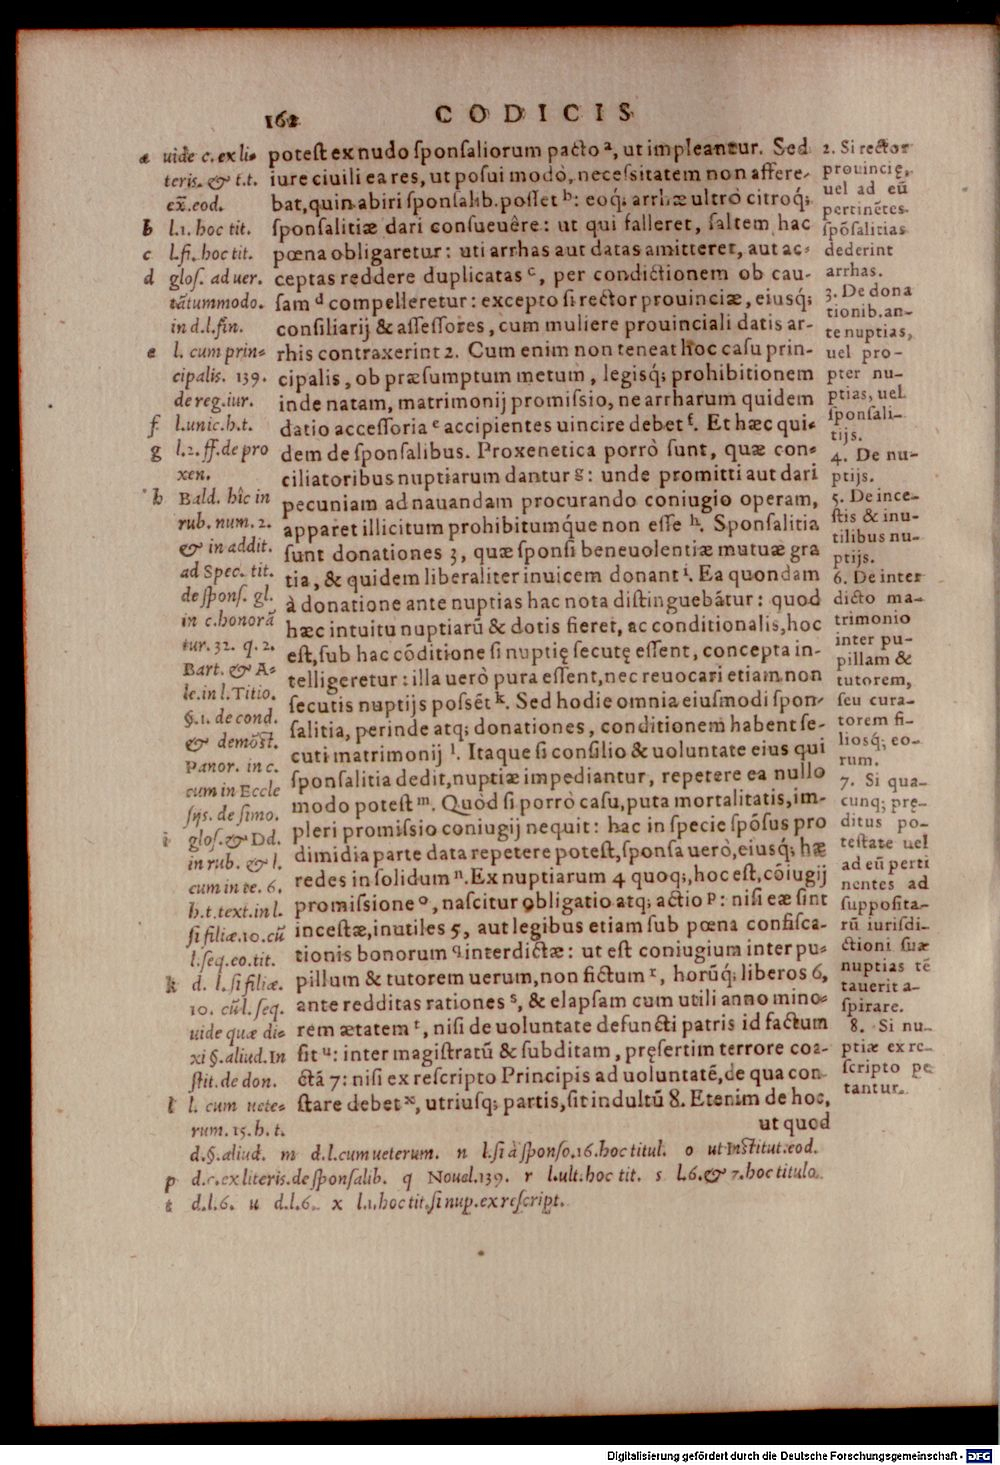 162 CODICIS
a uide c. ex li-
teris. & t.t.
ex̃. eod.
b l.1. hoc tit.
c l.fi. hoc tit.
d gloſ. ad uer.
tãtummodo.
in d.l.fin.
e l. cum prin-
cipalis. 139.
de reg.iur.
f l.unic.h.t.
g l.2. ff.de pro
xen.
h Bald. hîc in
rub. num. 2.
& in addit.
ad Spec. tit.
de ſponſ. gl.
in c.honorã
tur. 32. q. 2.
Bart. & A-
le.in l.Titio.
§.1. de cond.
& demõſt.
Panor. in c.
cum in Eccle
ſijs. de ſimo.
i gloſ.& Dd.
in rub. & l.
cum in te. 6.
h.t.text.in l.
ſi filiæ.10.cũ
l.ſeq.eo.tit.
k d. l.ſi filiæ.
10. cũ l. ſeq.
uide quæ di-
xi §.aliud.In
ſtit.de don.
l l. cum uete-
rum. 15.h.t.
poteſt ex nudo ſponſaliorum pacto a, ut impleantur. Sed
iure ciuili ea res, ut poſui modò, neceſsitatem non affere-
bat, quin abiri ſponſalib. poſſet b: eoq́; arrhæ ultrò citroq́;
ſponſalitiæ dari conſueuêre: ut qui falleret, ſaltem hac
pœna obligaretur: uti arrhas aut datas amitteret, aut ac-
ceptas reddere duplicatas c, per condictionem ob cau-
ſam d compelleretur: excepto ſi rector prouinciæ, eiusq́;
conſiliarij & aſſeſſores, cum muliere prouinciali datis ar-
rhis contraxerint 2. Cum enim non teneat hoc caſu prin-
cipalis, ob præſumptum metum, legisq́; prohibitionem
inde natam, matrimonij promiſsio, ne arrharum quidem
datio acceſſoria e accipientes uincire debet f. Et hæc qui-
dem de ſponſalibus. Proxenetica porrò ſunt, quæ con-
ciliatoribus nuptiarum dantur g: unde promitti aut dari
pecuniam ad nauandam procurando coniugio operam,
apparet illicitum prohibitumq́ue non eſſe h. Sponſalitia
ſunt donationes 3, quæ ſponſi beneuolentiæ mutuæ gra
tia, & quidem liberaliter inuicem donant i. Ea quondam
à donatione ante nuptias hac nota diſtinguebátur: quod
hæc intuitu nuptiarũ & dotis fieret, ac conditionalis, hoc
eſt, ſub hac cõditione ſi nuptię ſecutę eſſent, concepta in-
telligeretur: illa uerò pura eſſent, nec reuocari etiam non
ſecutis nuptijs poſsẽt k. Sed hodie omnia eiuſmodi ſpon-
ſalitia, perinde atq; donationes, conditionem habent ſe-
cuti matrimonij l. Itaque ſi conſilio & uoluntate eius qui
ſponſalitia dedit, nuptiæ impediantur, repetere ea nullo
modo poteſt m. Quòd ſi porrò caſu, puta mortalitatis, im-
pleri promiſsio coniugij nequit: hac in ſpecie ſpõſus pro
dimidia parte data repetere poteſt, ſponſa uerò, eiusq́; hæ
redes in ſolidum n. Ex nuptiarum 4 quoq;, hoc eſt, cõiugij
promiſsione o, naſcitur obligatio atq; actio p: niſi eæ ſint
inceſtæ, inutiles 5, aut legibus etiam ſub pœna confiſca-
tionis bonorum q interdictæ: ut eſt coniugium inter pu-
pillum & tutorem uerum, non fictum r, horũq́; liberos 6,
ante redditas rationes s, & elapſam cum utili anno mino-
rem ætatem t, niſi de uoluntate defuncti patris id factum
ſit u: inter magiſtratũ & ſubditam, pręſertim terrore coa-
ctã 7: niſi ex reſcripto Principis ad uoluntatẽ, de qua con-
ſtare debet x, utriusq; partis, ſit indultũ 8. Etenim de hoc,
ut quod
2. Si rector
prouincię,
uel ad eũ
pertinẽtes
ſpõſalitias
dederint
arrhas.
3. De dona
tionib. an-
te nuptias,
uel pro-
pter nu-
ptias, uel
ſponſali-
tijs.
4. De nu-
ptijs.
5. De ince-
ſtis & inu-
tilibus nu-
ptijs.
6. De inter
dicto ma-
trimonio
inter pu-
pillam &
tutorem,
ſeu cura-
torem fi-
liosq́; eo-
rum.
7. Si qua-
cunq; prę-
ditus po-
teſtate uel
ad eũ perti
nentes ad
ſuppoſita-
rũ iurisdi-
ctioni ſuæ
nuptias tẽ
tauerit a-
ſpirare.
8. Si nu-
ptiæ ex re-
ſcripto pe
tantur.
d.§.aliud. m d.l.cum ueterum. n l.ſi à ſponſo.16.hoc titul. o ut Inſtitut.eod.
p d.c.ex literis.de ſponſalib. q Nouel.139. r l.ult.hoc tit. s l.6.& 7.hoc titulo.
t d.l.6. u d.l.6. x l.1.hoc tit.ſi nup.ex reſcript.
Digitalisierung gefördert durch die Deutsche Forschungsgemeinschaft - DFG